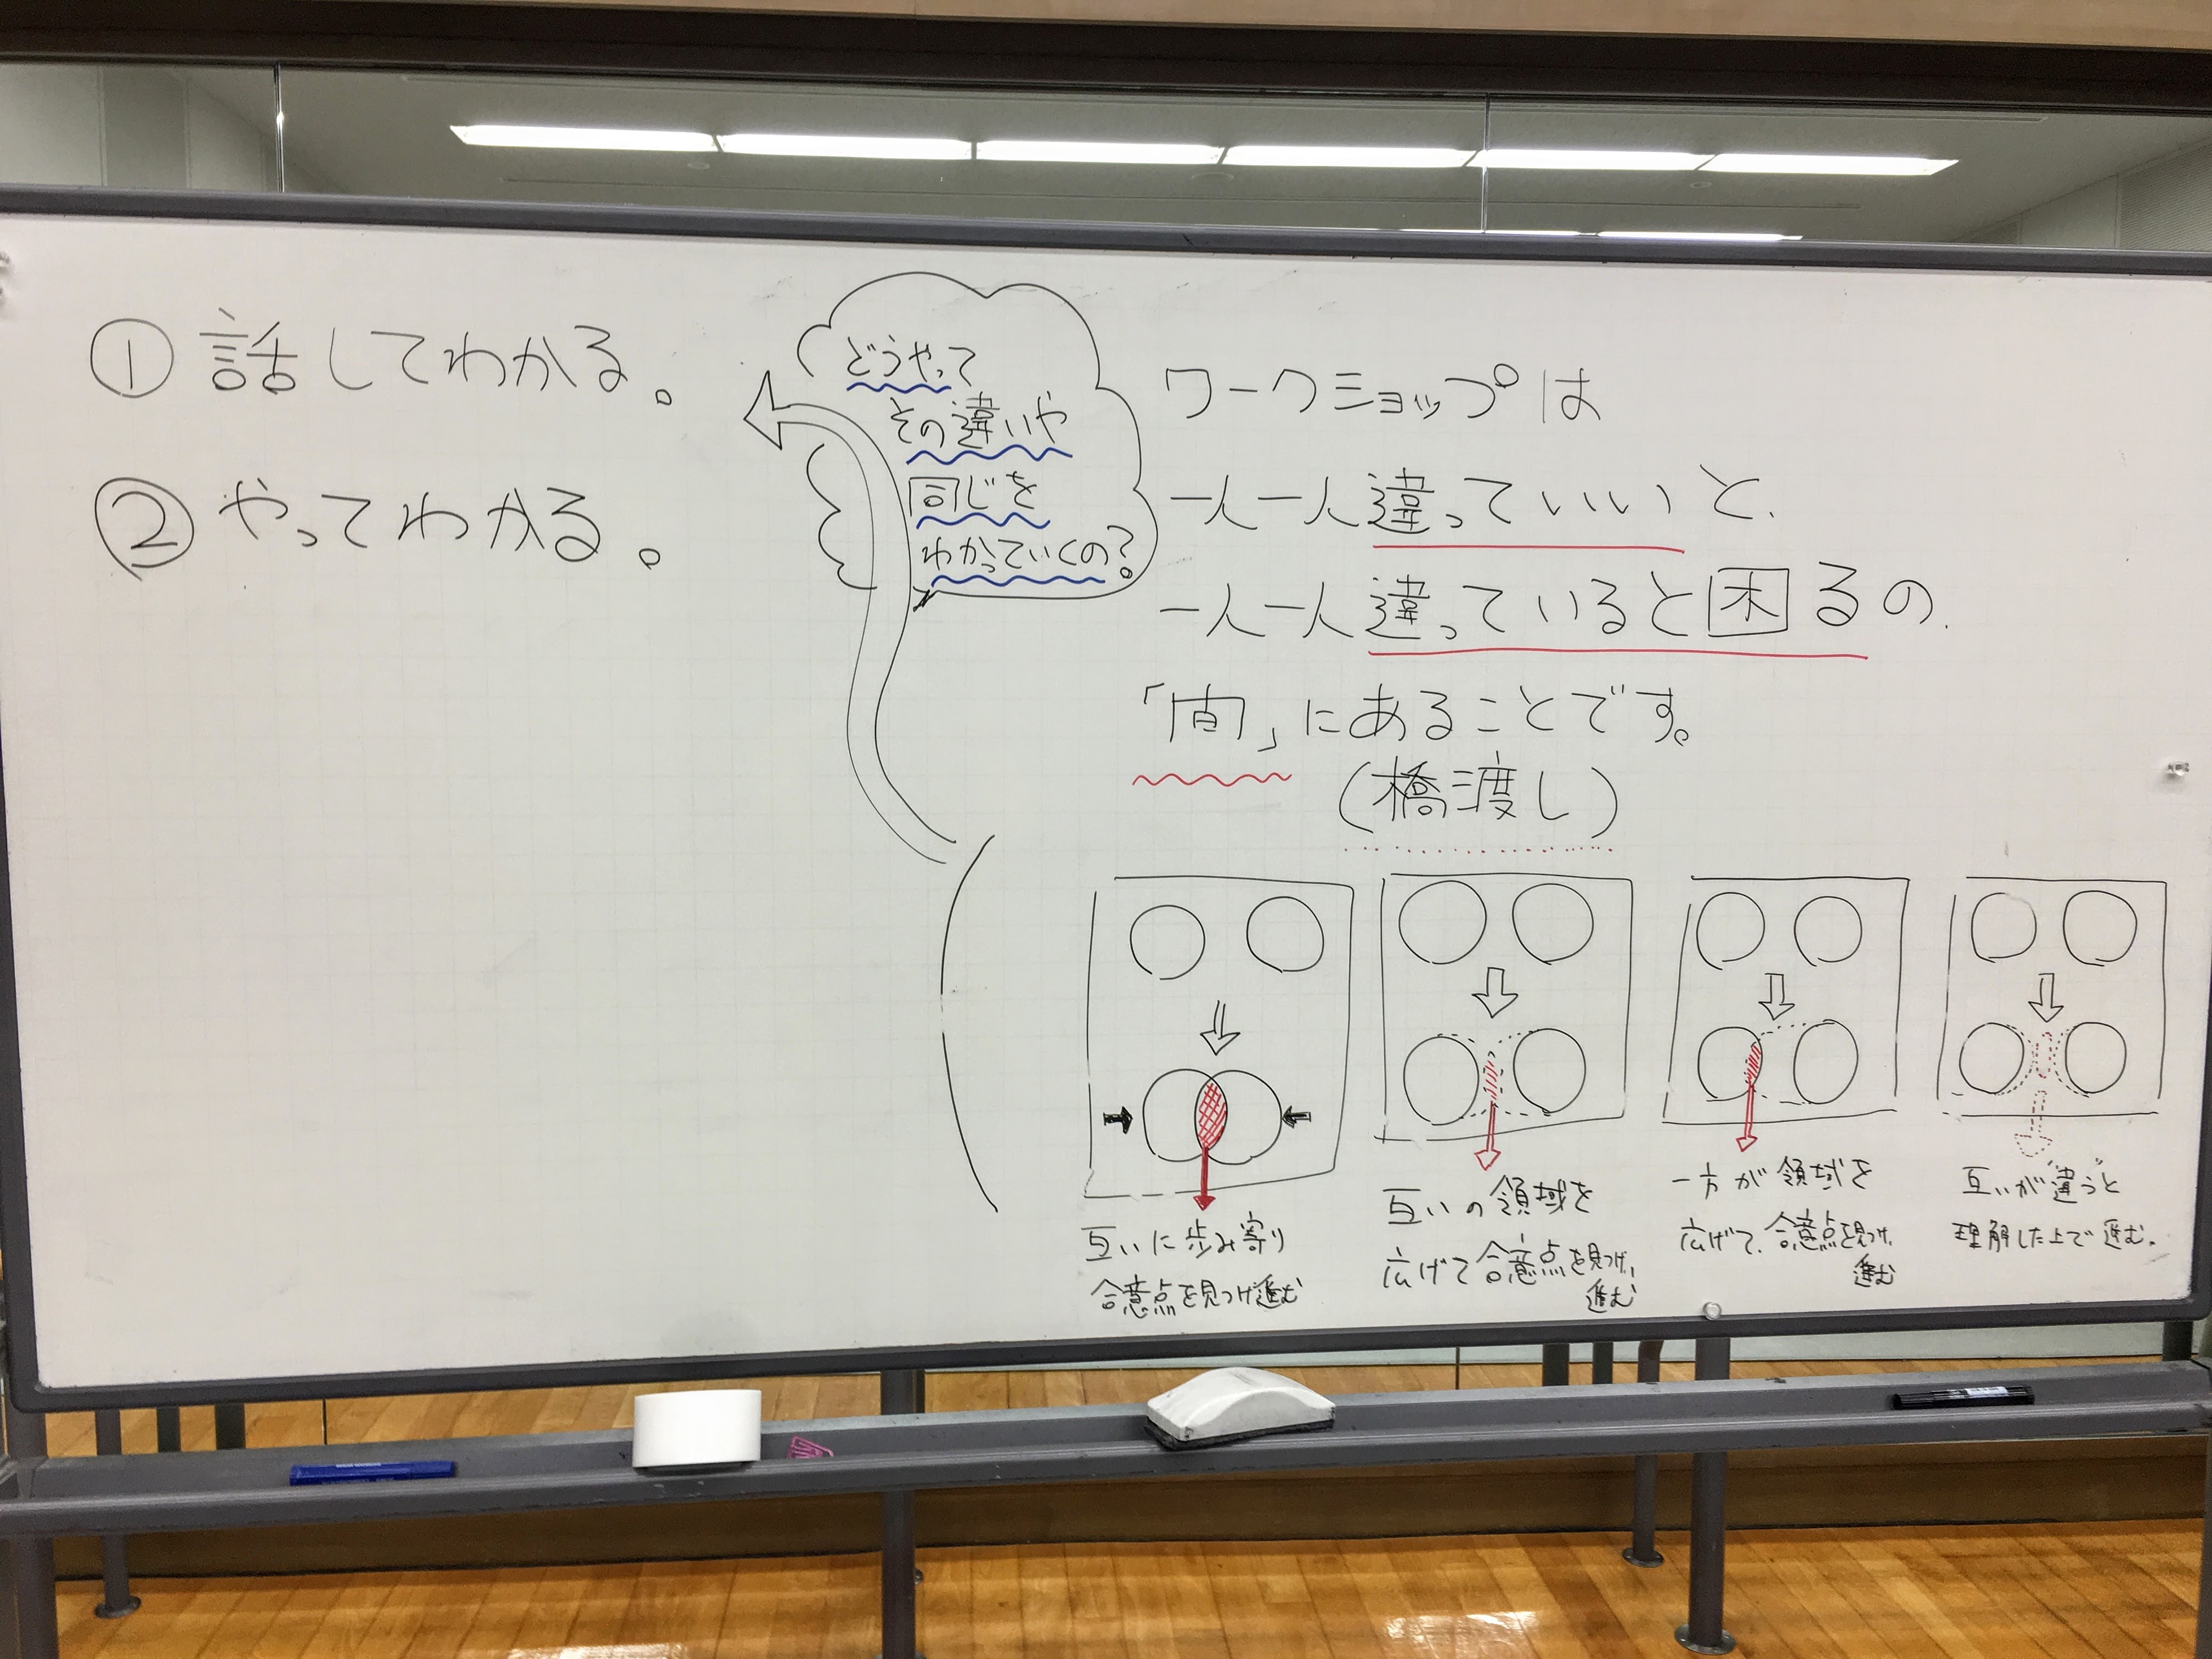 ① 話してわかる。
② やってわかる。
どうやって
その違いや
同じを
わかっていくの?
ワークショップは
一人一人違っていいと、
一人一人違っていると困るの、
「間」にあることです。
(橋渡し)
互いに歩み寄り
合意点を見つけ進む
互いの領域を
広げて合意点を見つけ、
進む
一方が領域を
広げて、合意点を見つけ、
進む
互いが"違う"と
理解した上で進む。